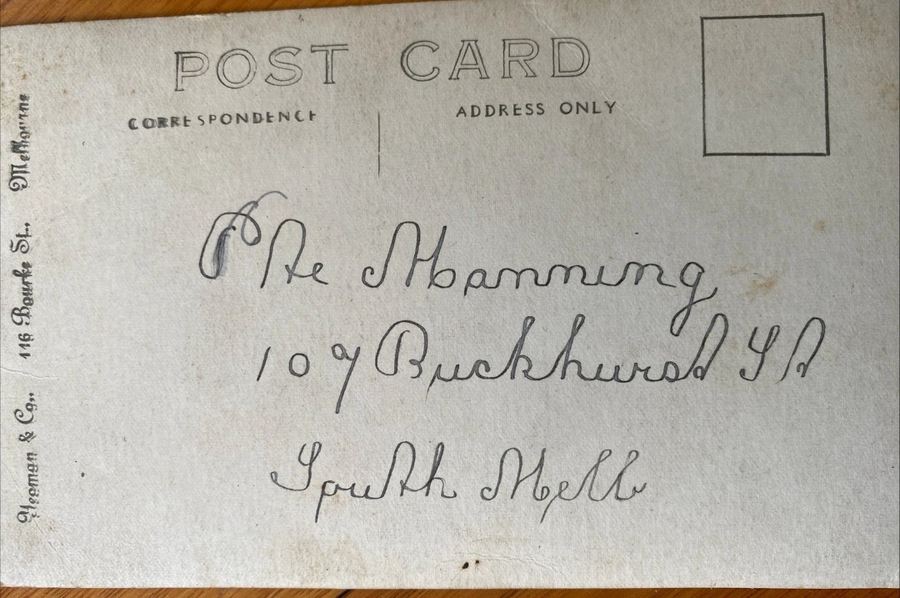 POST CARD
CORRESPONDENCE
ADDRESS ONLY
Pte Manning
107 Buckhurst St
South Melb
Yeoman & Co., 116 Bourke St., Melbourne